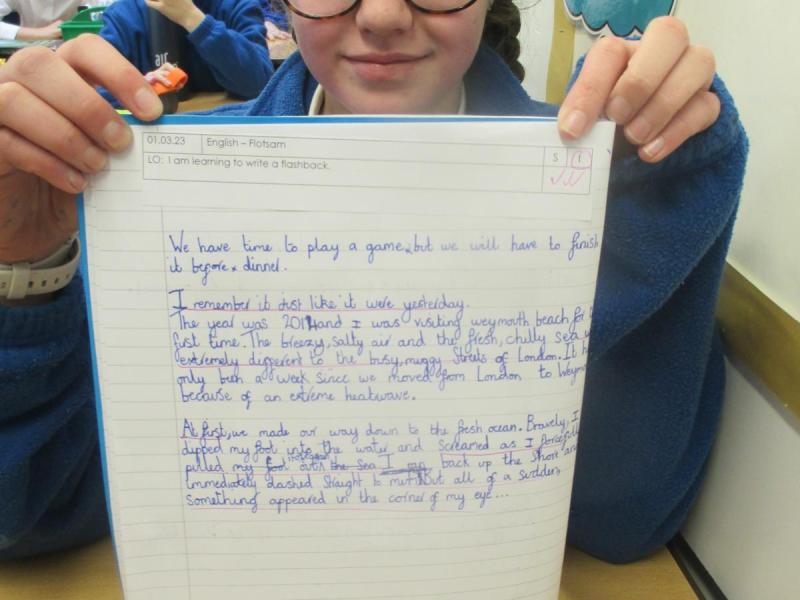 01.03.23 English – Flotsam
LO: I am learning to write a flashback. S I
We have time to play a game, but we will have to finish
it before dinner.
I remember it just like it were yesterday.
The year was 2014 and I was visiting weymouth beach for
first time. The breezy, salty air and the fresh, chilly sea
extremely different to the busy, muggy streets of London. It
only been a week since we moved from London to
because of an extreme heatwave.
At first, we made our way down to the fresh ocean. Bravely, I
dipped my foot into the water and screamed as I
pulled my foot the sea I back up the shore and
immediately dashed straight to but all of a sudden,
something appeared in the corner of my eye...